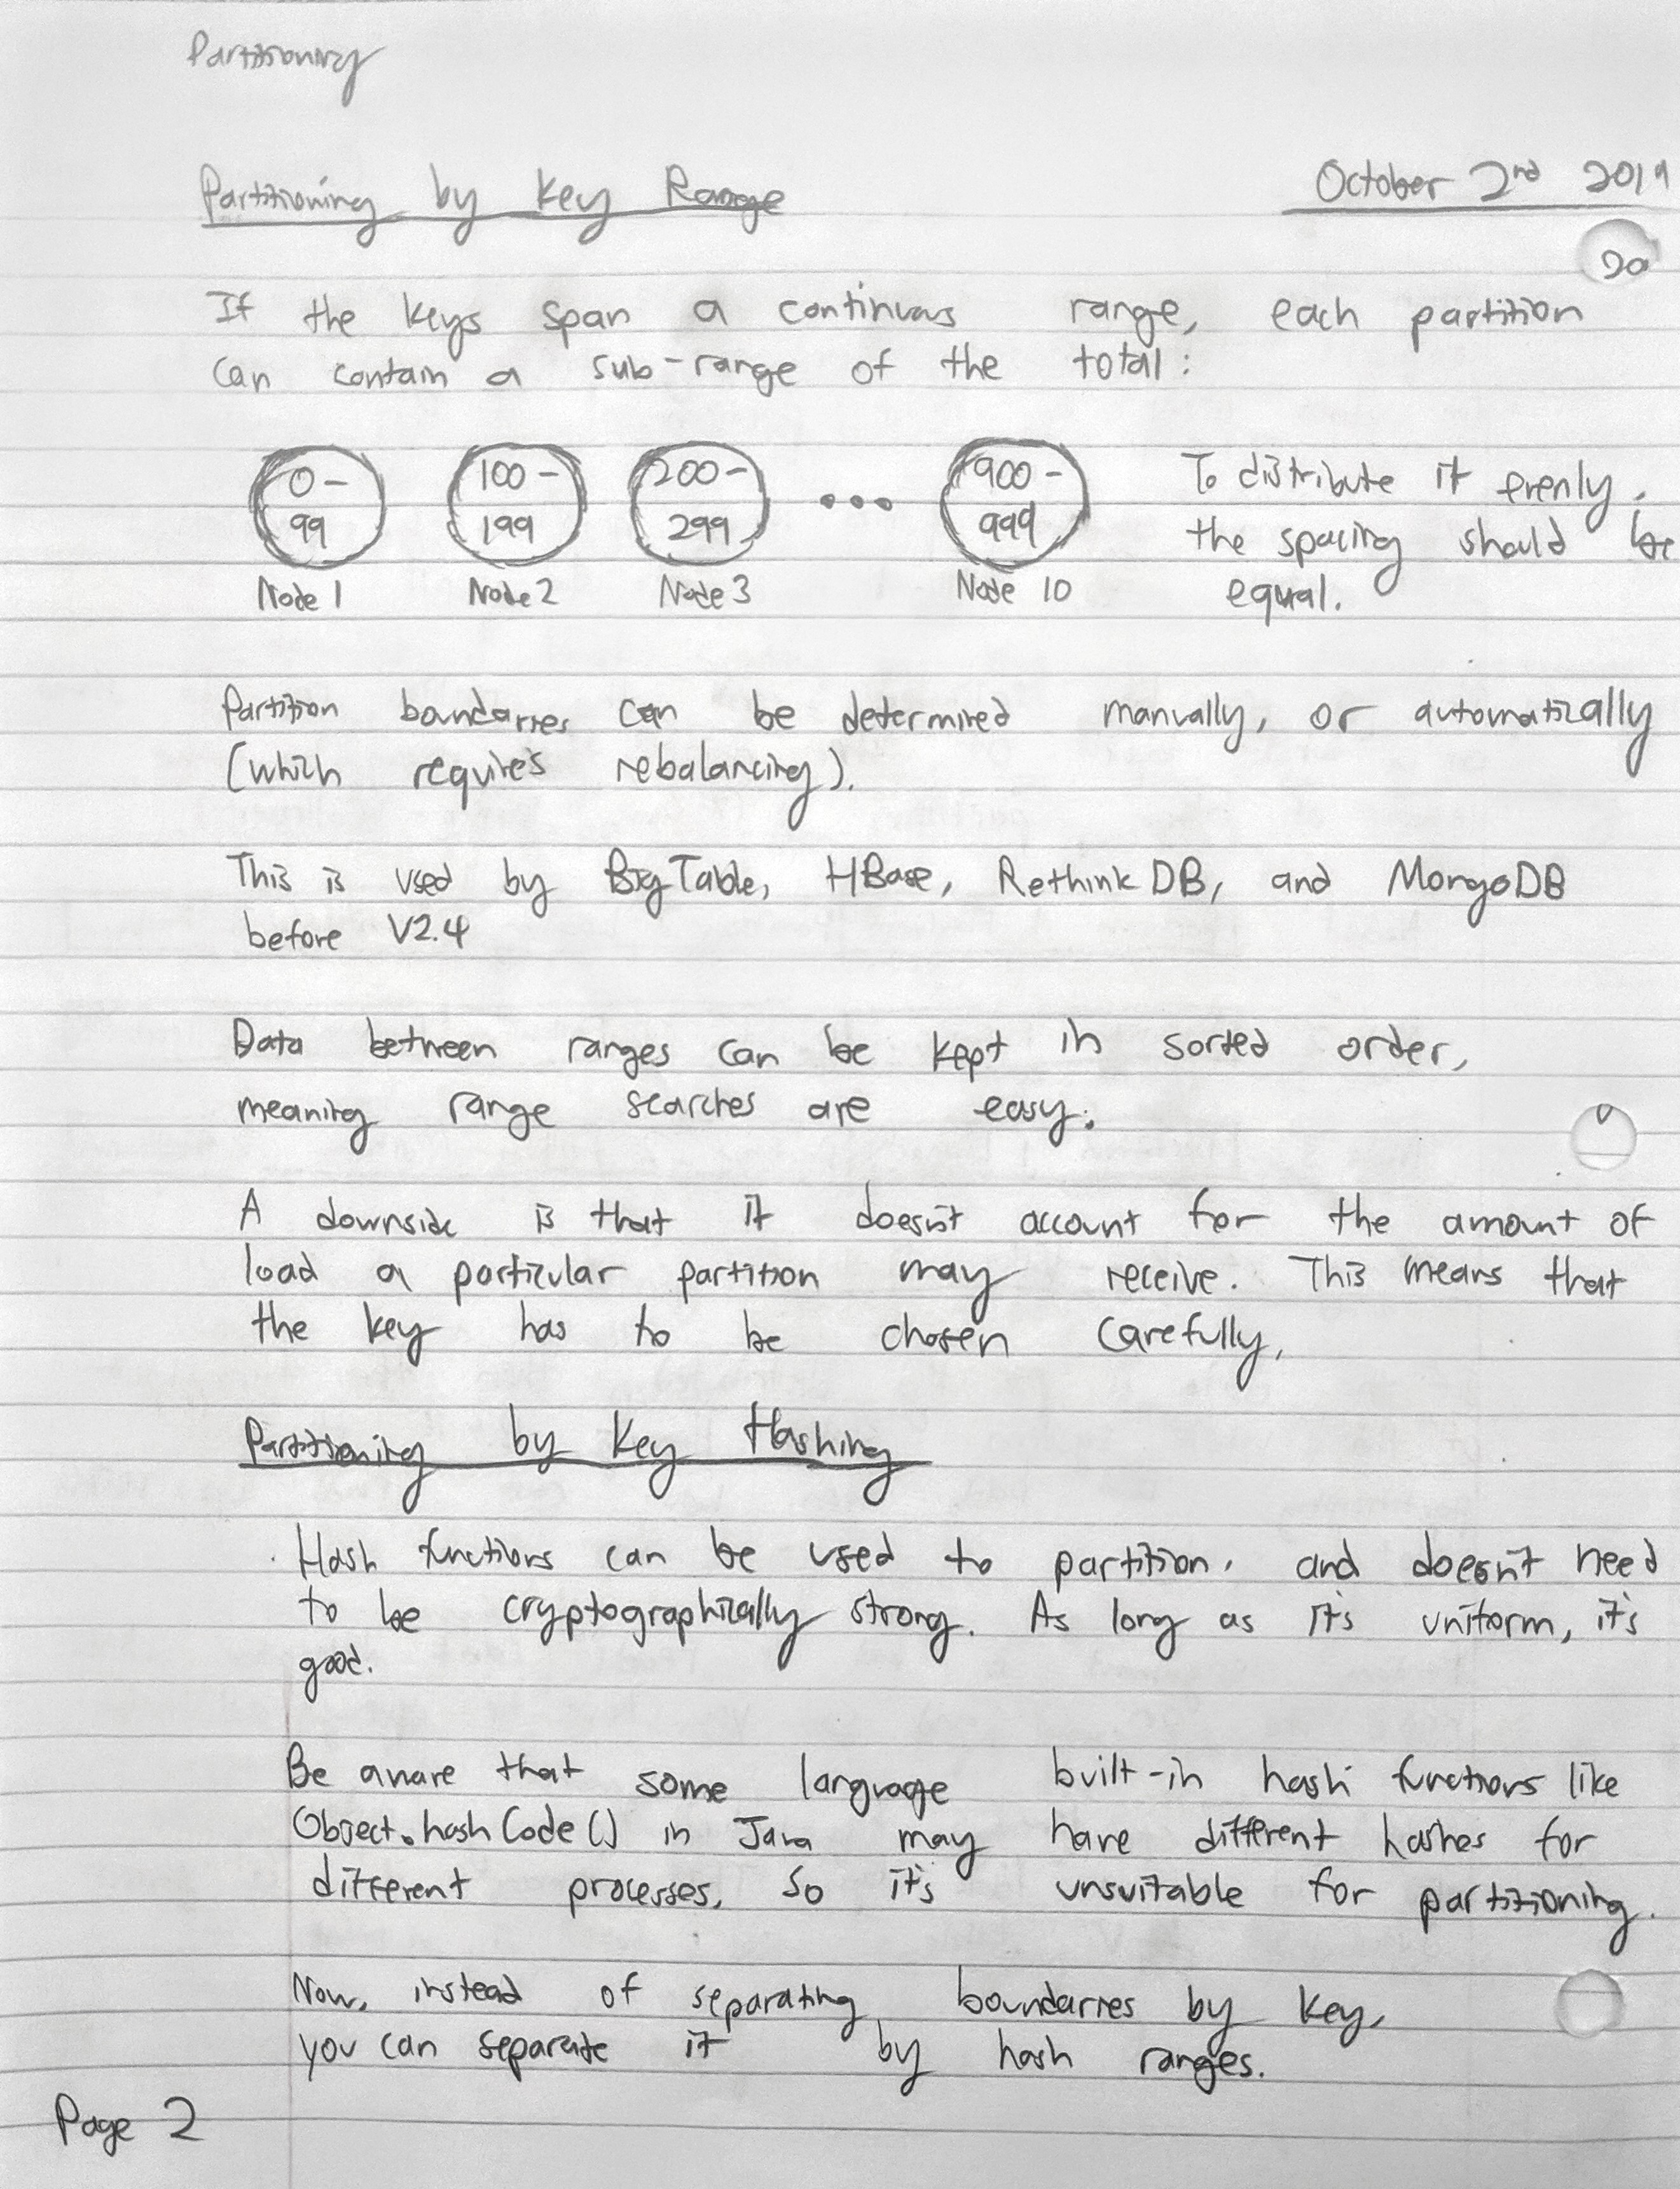 Partitioning
Partitioning by Key Range
October 2nd 2019
If the keys span a continuous range, each partition
can contain a sub-range of the total:
0- 100- 200- ... 900-
99 199 299 999
Node 1 Node 2 Node 3 Node 10
To distribute it evenly,
the spacing should be
equal.
Partition boundaries can be determined manually, or automatically
(which requires rebalancing).
This is used by BigTable, HBase, RethinkDB, and MongoDB
before V2.4
Data between ranges can be kept in sorted order,
meaning range searches are easy.
A downside is that it doesn't account for the amount of
load a particular partition may receive. This means that
the key has to be chosen carefully.
Partitioning by Key Hashing
Hash functions can be used to partition, and doesn't need
to be cryptographically strong. As long as it's uniform, it's
good.
Be aware that some language built-in hash functions like
Object.hashCode() in Java may have different hashes for
different processes, so it's unsuitable for partitioning.
Now, instead of separating boundaries by key,
you can separate it by hash ranges.
Page 2